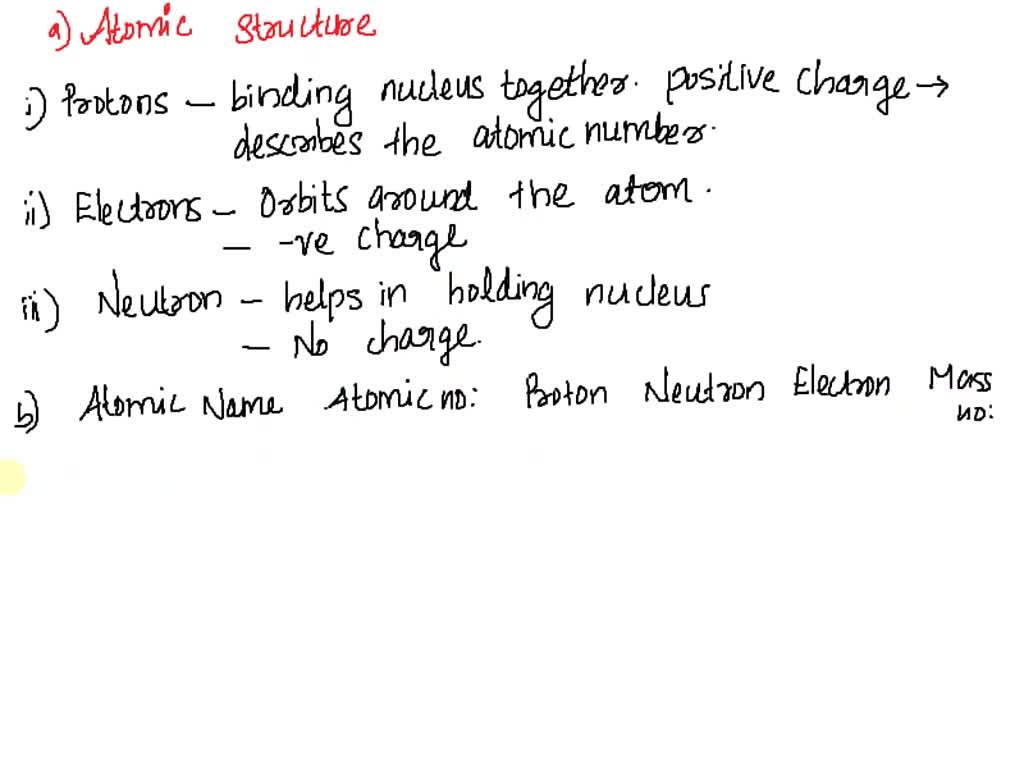 a) Atomic Structure
i) Protons – binding nucleus together. positive charge →
describes the atomic number.
ii) Electrons – Orbits around the atom.
– -ve charge
iii) Neutron – helps in holding nucleus
– No charge.
b) Atomic Name Atomic no: Proton Neutron Electron Mass
no: